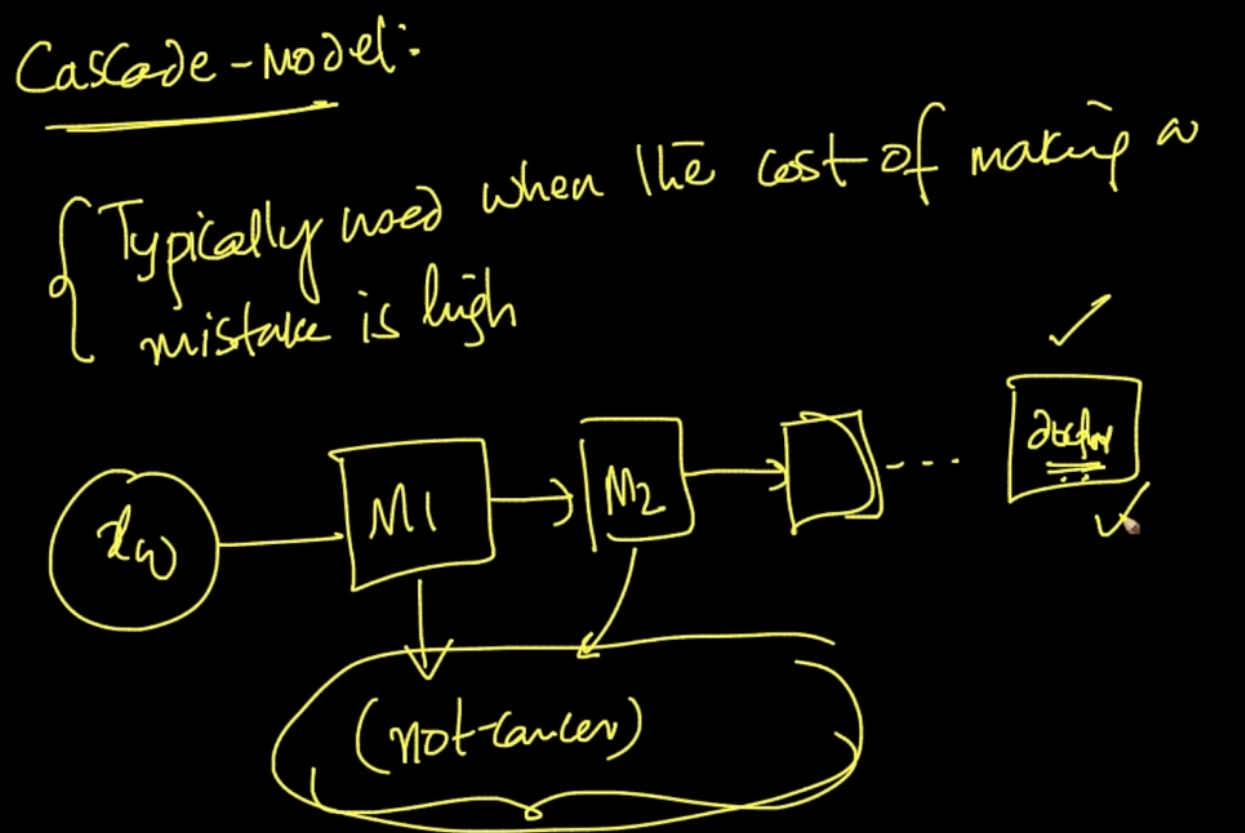 Cascade-model:
Typically used when the cost of making a
mistake is high
M1
M2
(not-cancer)